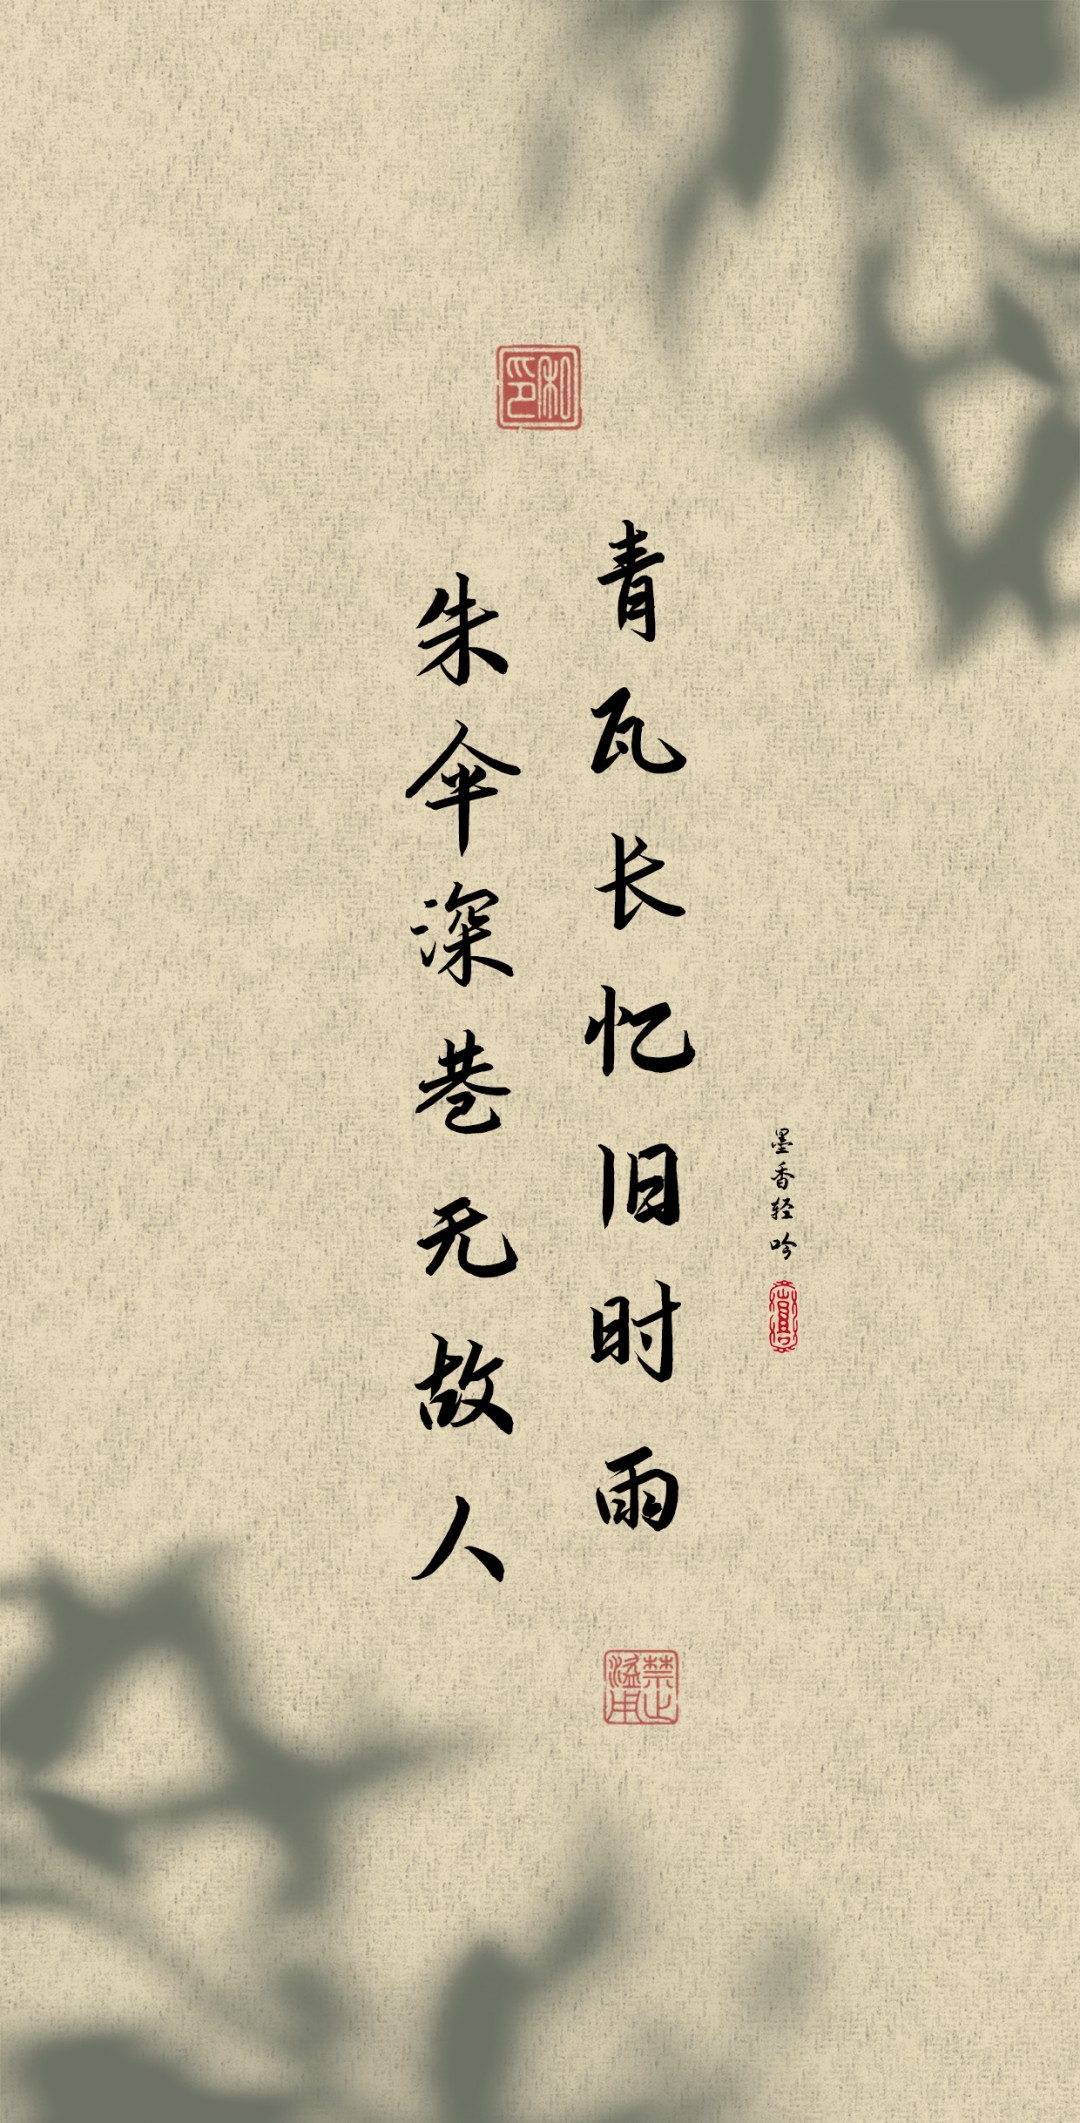 青瓦长忆旧时雨
朱伞深巷无故人
墨香轻吟
私印
禁止
滥用